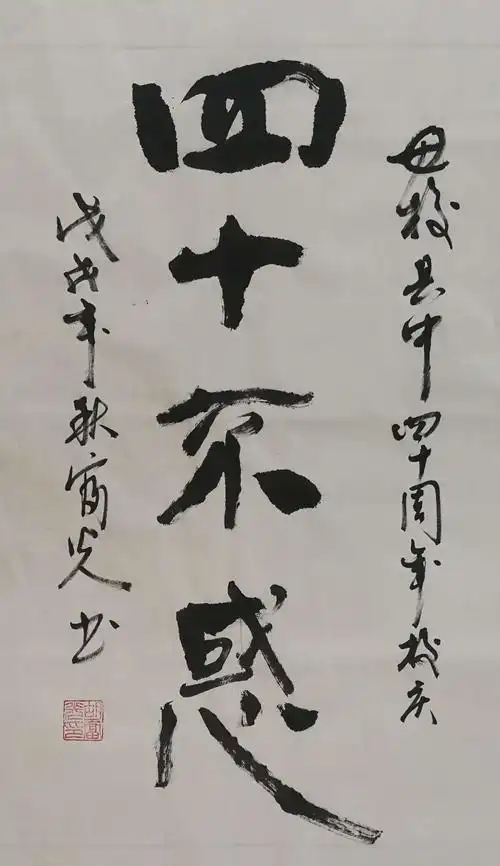 母校县中四十周年校庆
四十不惑
戊戌年秋富光书